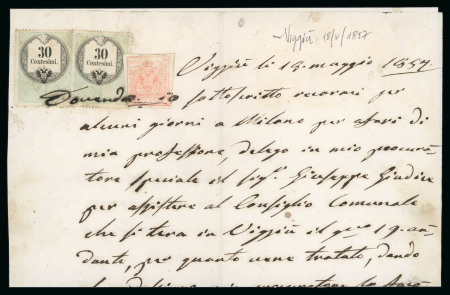 Viggiù, 18/V/1857
30
Centesimi.
30
Centesimi.
Viggiù li 18. maggio 1857
Dovendo io sottoscritto recarmi per
alcuni giorni a Milano per affari di
mia professione, delego in mio procura-
tore speciale il sig.r Giuseppe Giudice
per assistere al Consiglio Comunale
che si terrà in Viggiù il gno 19. an-
dante, per quanto verrà trattato, dando